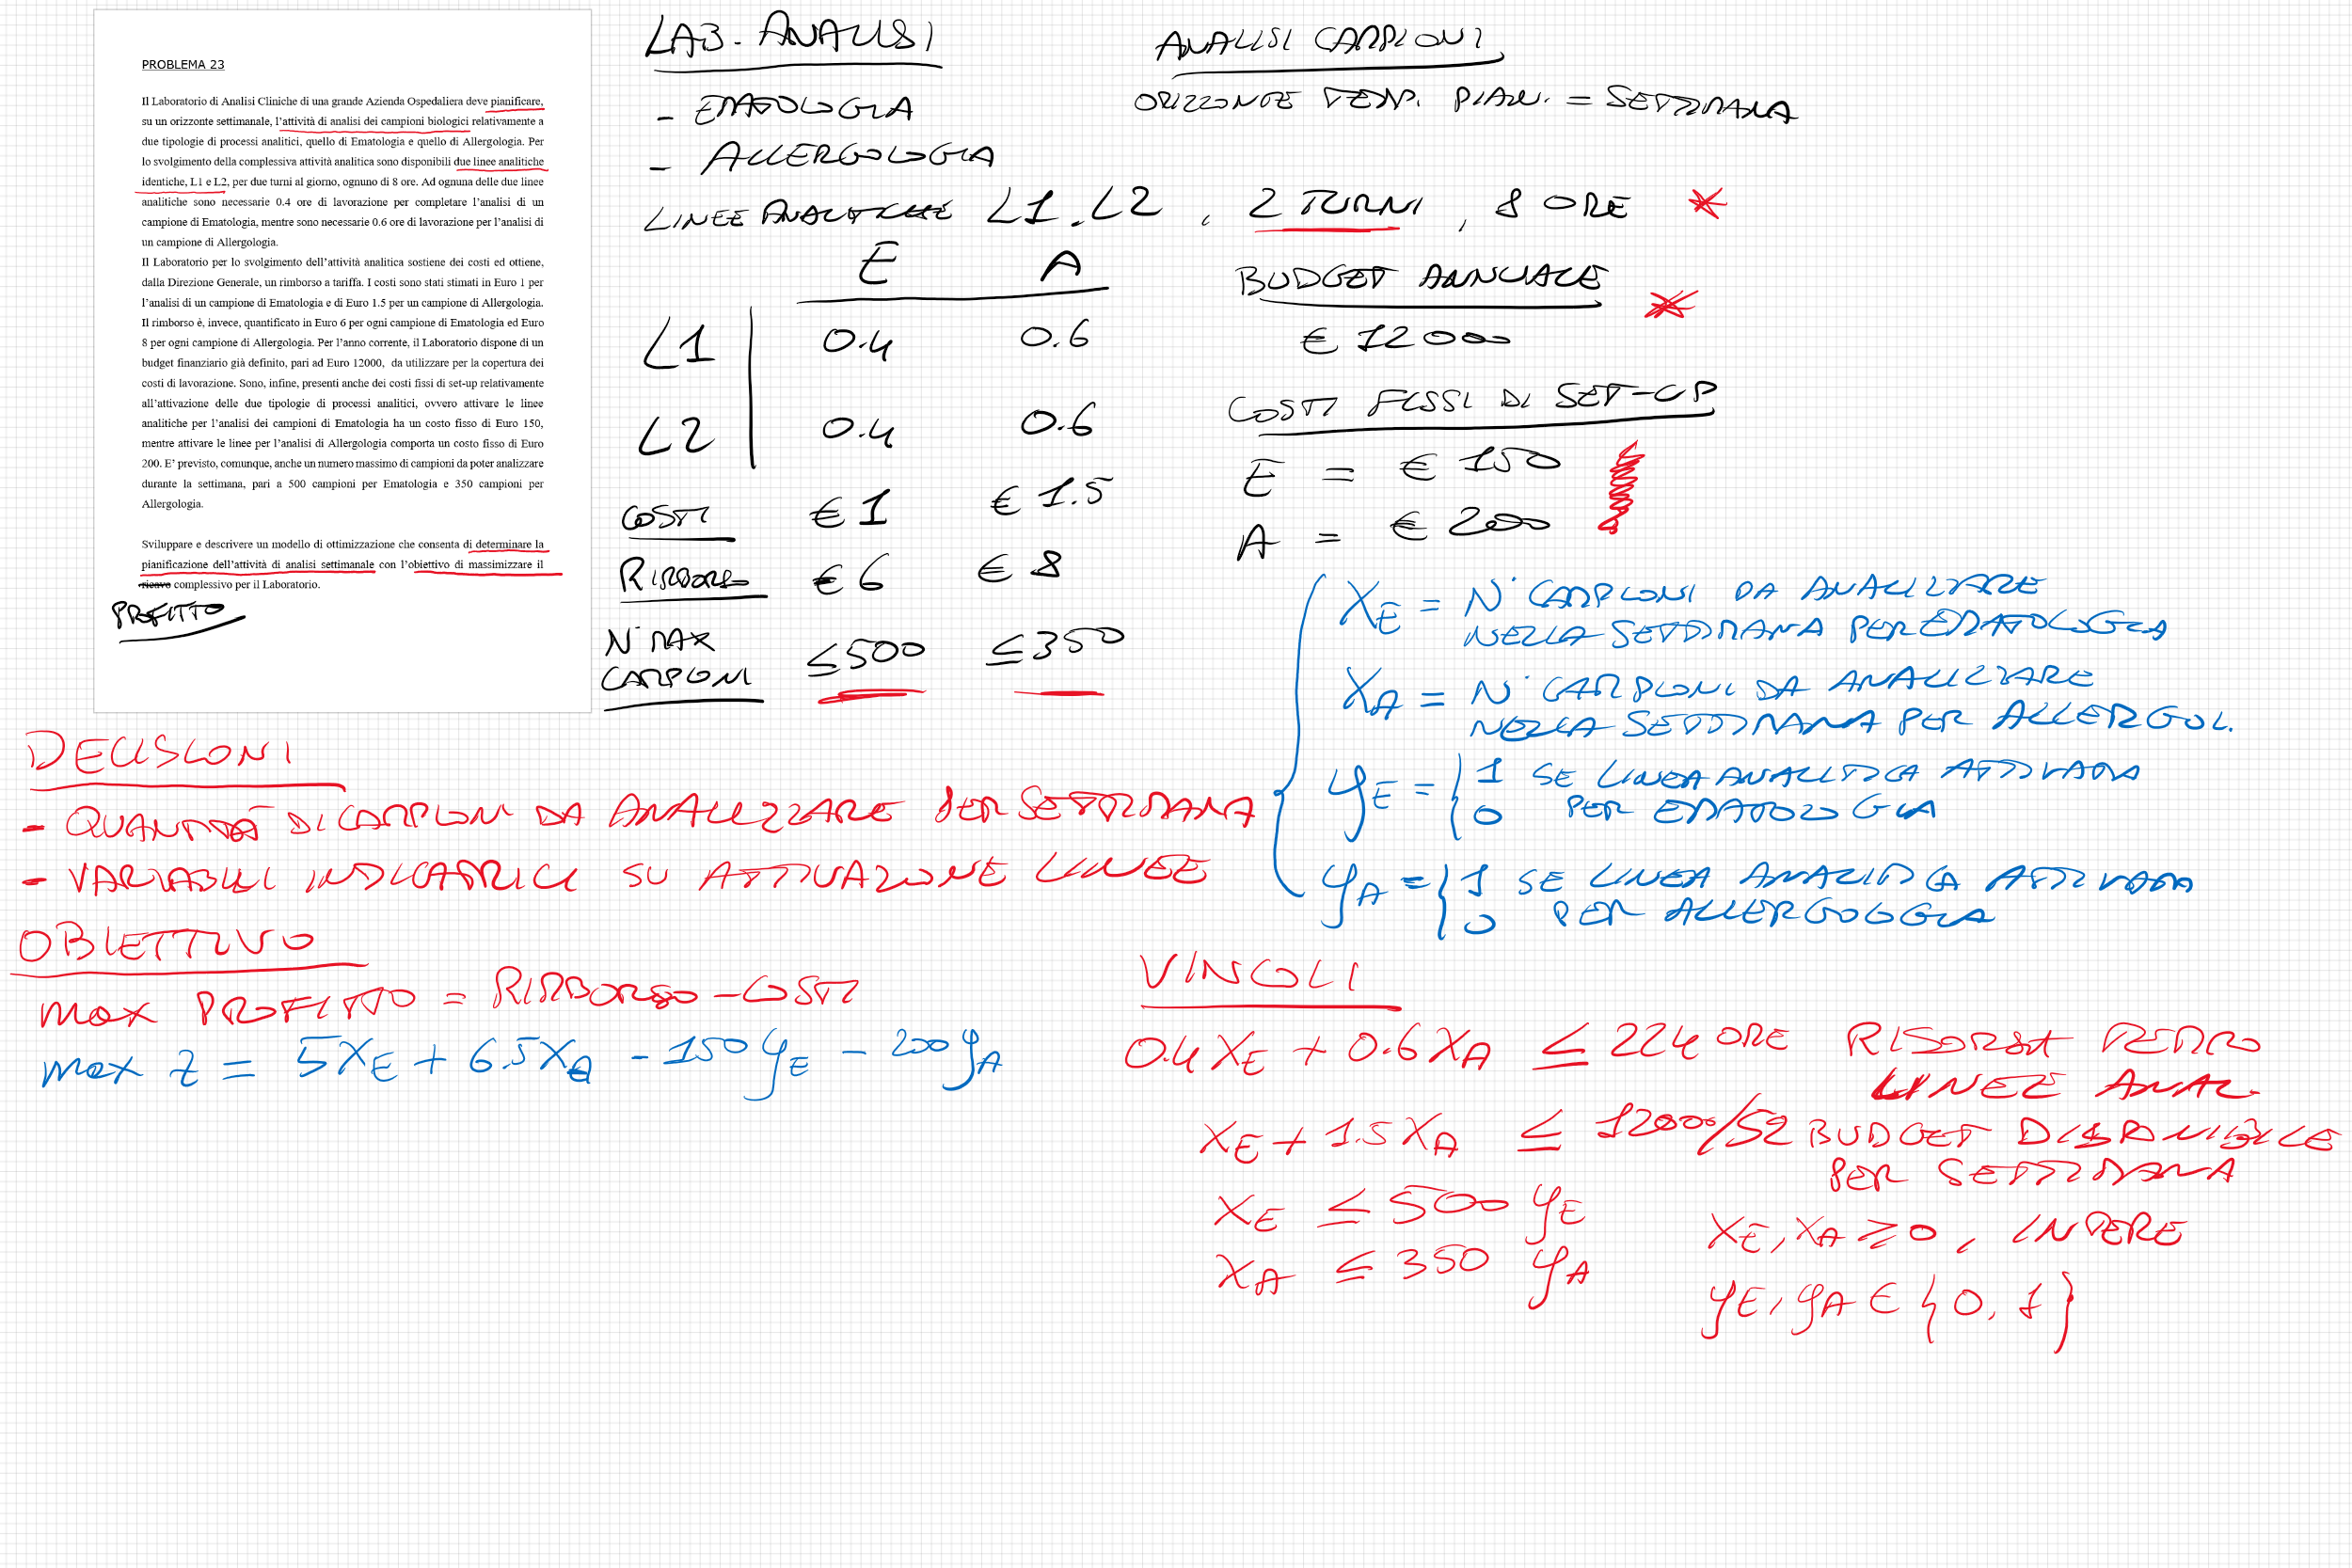 PROBLEMA 23
Il Laboratorio di Analisi Cliniche di una grande Azienda Ospedaliera deve pianificare,
su un orizzonte settimanale, l'attività di analisi dei campioni biologici relativamente a
due tipologie di processi analitici, quello di Ematologia e quello di Allergologia. Per
lo svolgimento della complessiva attività analitica sono disponibili due linee analitiche
identiche, L1 e L2, per due turni al giorno, ognuno di 8 ore. Ad ognuna delle due linee
analitiche sono necessarie 0.4 ore di lavorazione per completare l'analisi di un
campione di Ematologia, mentre sono necessarie 0.6 ore di lavorazione per l'analisi di
un campione di Allergologia.
Il Laboratorio per lo svolgimento dell'attività analitica sostiene dei costi ed ottiene,
dalla Direzione Generale, un rimborso a tariffa. I costi sono stati stimati in Euro 1 per
l'analisi di un campione di Ematologia e di Euro 1.5 per un campione di Allergologia.
Il rimborso è, invece, quantificato in Euro 6 per ogni campione di Ematologia ed Euro
8 per ogni campione di Allergologia. Per l'anno corrente, il Laboratorio dispone di un
budget finanziario già definito, pari ad Euro 12000, da utilizzare per la copertura dei
costi di lavorazione. Sono, infine, presenti anche dei costi fissi di set-up relativamente
all'attivazione delle due tipologie di processi analitici, ovvero attivare le linee
analitiche per l'analisi dei campioni di Ematologia ha un costo fisso di Euro 150,
mentre attivare le linee per l'analisi di Allergologia comporta un costo fisso di Euro
200. E' previsto, comunque, anche un numero massimo di campioni da poter analizzare
durante la settimana, pari a 500 campioni per Ematologia e 350 campioni per
Allergologia.
Sviluppare e descrivere un modello di ottimizzazione che consenta di determinare la
pianificazione dell'attività di analisi settimanale con l'obiettivo di massimizzare il
ricavo complessivo per il Laboratorio.
PROFITTO
LAB. ANALISI
- EMATOLOGIA
- ALLERGOLOGIA
ANALISI CAMPIONI
ORIZZONTE TEMP. PIAN. = SETTIMANA
LINEE ANALITICHE L1, L2, 2 TURNI, 8 ORE *
E A
L1 0.4 0.6
L2 0.4 0.6
COSTI € 1 € 1.5
RIMBORSO € 6 € 8
N° MAX
CAMPIONI ≤500 ≤350
BUDGET ANNUALE *
€ 12000
COSTI FISSI DI SET-UP
E = € 150
A = € 200
XE = N° CAMPIONI DA ANALIZZARE
NELLA SETTIMANA PER EMATOLOGIA
XA = N° CAMPIONI DA ANALIZZARE
NELLA SETTIMANA PER ALLERGOL.
yE = { 1 SE LINEA ANALITICA ATTIVATA
0 PER EMATOLOGIA
yA = { 1 SE LINEA ANALITICA ATTIVATA
0 PER ALLERGOLOGIA
DECISIONI
- QUANTITÀ DI CAMPIONI DA ANALIZZARE PER SETTIMANA
- VARIABILI INDICATRICI SU ATTIVAZIONE LINEE
OBIETTIVO
max PROFITTO = RIMBORSO - COSTI
max z = 5XE + 6.5XA - 150yE - 200yA
VINCOLI
0.4XE + 0.6XA ≤ 224 ORE RISORSA TEMPO
LINEE ANAL.
XE + 1.5XA ≤ 12000/52 BUDGET DISPONIBILE
PER SETTIMANA
XE ≤ 500 yE
XA ≤ 350 yA
XE, XA ≥ 0, INTERE
yE, yA ∈ {0, 1}